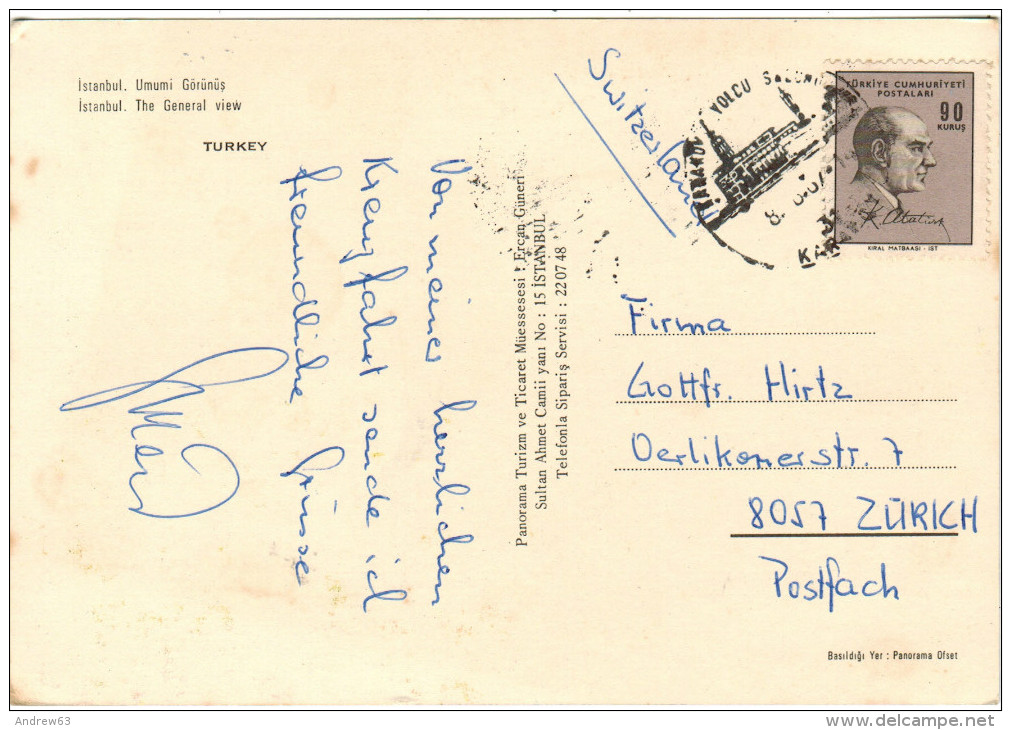 İstanbul. Umumi Görünüş
İstanbul. The General view
TURKEY
Von meiner herrlichen
Kreuzfahrt sende ich
freundliche Grüsse
Panorama Turizm ve Ticaret Müessesesi : Ercan Güneri
Sultan Ahmet Camii yanı No : 15 İSTANBUL
Telefonla Sipariş Servisi : 22 07 48
Switzerland
YOLCU SALONU
TÜRKİYE CUMHURİYETİ
POSTALARI
90
KURUŞ
K. Atatürk
KIRAL MATBAASI - İST
Firma
Gottfr. Hirtz
Oerlikonerstr. 7
8057 ZÜRICH
Postfach
Basıldığı Yer : Panorama Ofset
Andrew63
delcampe.net